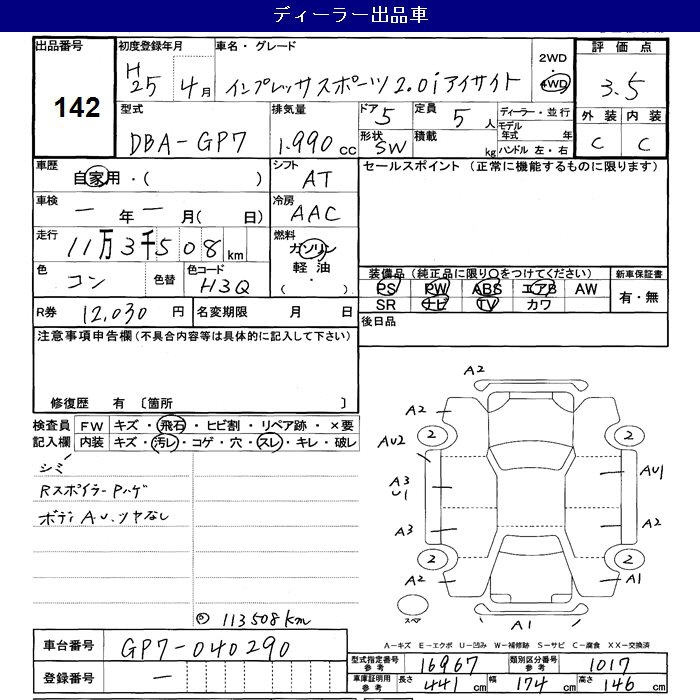 ディーラー出品車
出品番号 142
初度登録年月 H25 4月
車名・グレード インプレッサスポーツ2.0iアイサイト
2WD 4WD
評価点 3.5
外装 C 内装 C
型式 DBA-GP7
排気量 1.990 cc
ドア 5
形状 SW
定員 5人
積載 kg
ディーラー・並行
モデル年式 年
ハンドル 左・右
車歴 自家用・( )
シフト AT
セールスポイント (正常に機能するものに限ります)
車検 ー年ー月( 日)
冷房 AAC
走行 11万3千508km
燃料 ガソリン 軽油 ( ・ )
色 コン 色替 色コード H3Q
装備品(純正品に限り○をつけてください)
新車保証書 有・無
PS PW ABS エアB AW
SR ナビ TV カワ
R券 12,030 円 名変期限 月 日
後日品
注意事項申告欄(不具合内容等は具体的に記入して下さい)
修復歴 有 〔箇所 〕
検査員記入欄
FW キズ・飛石・ヒビ割・リペア跡・×要
内装 キズ・汚レ・コゲ・穴・スレ・キレ・破レ
シミ
Rスポイラー Pハゲ
ボディAU、ツヤなし
A2
A2
2 2
AU2 AU1
A3
U1
A3 A2
2 2
A2 A1
スペア
A1
113508km
A-キズ E-エクボ U-凹み W-補修跡 S-サビ C-腐食 XX-交換済
車台番号 GP7-040290
登録番号 ー
型式指定番号 参考 16967 類別区分番号 参考 1017
車庫証明用 参考 長さ 441 cm 幅 174 cm 高さ 146 cm